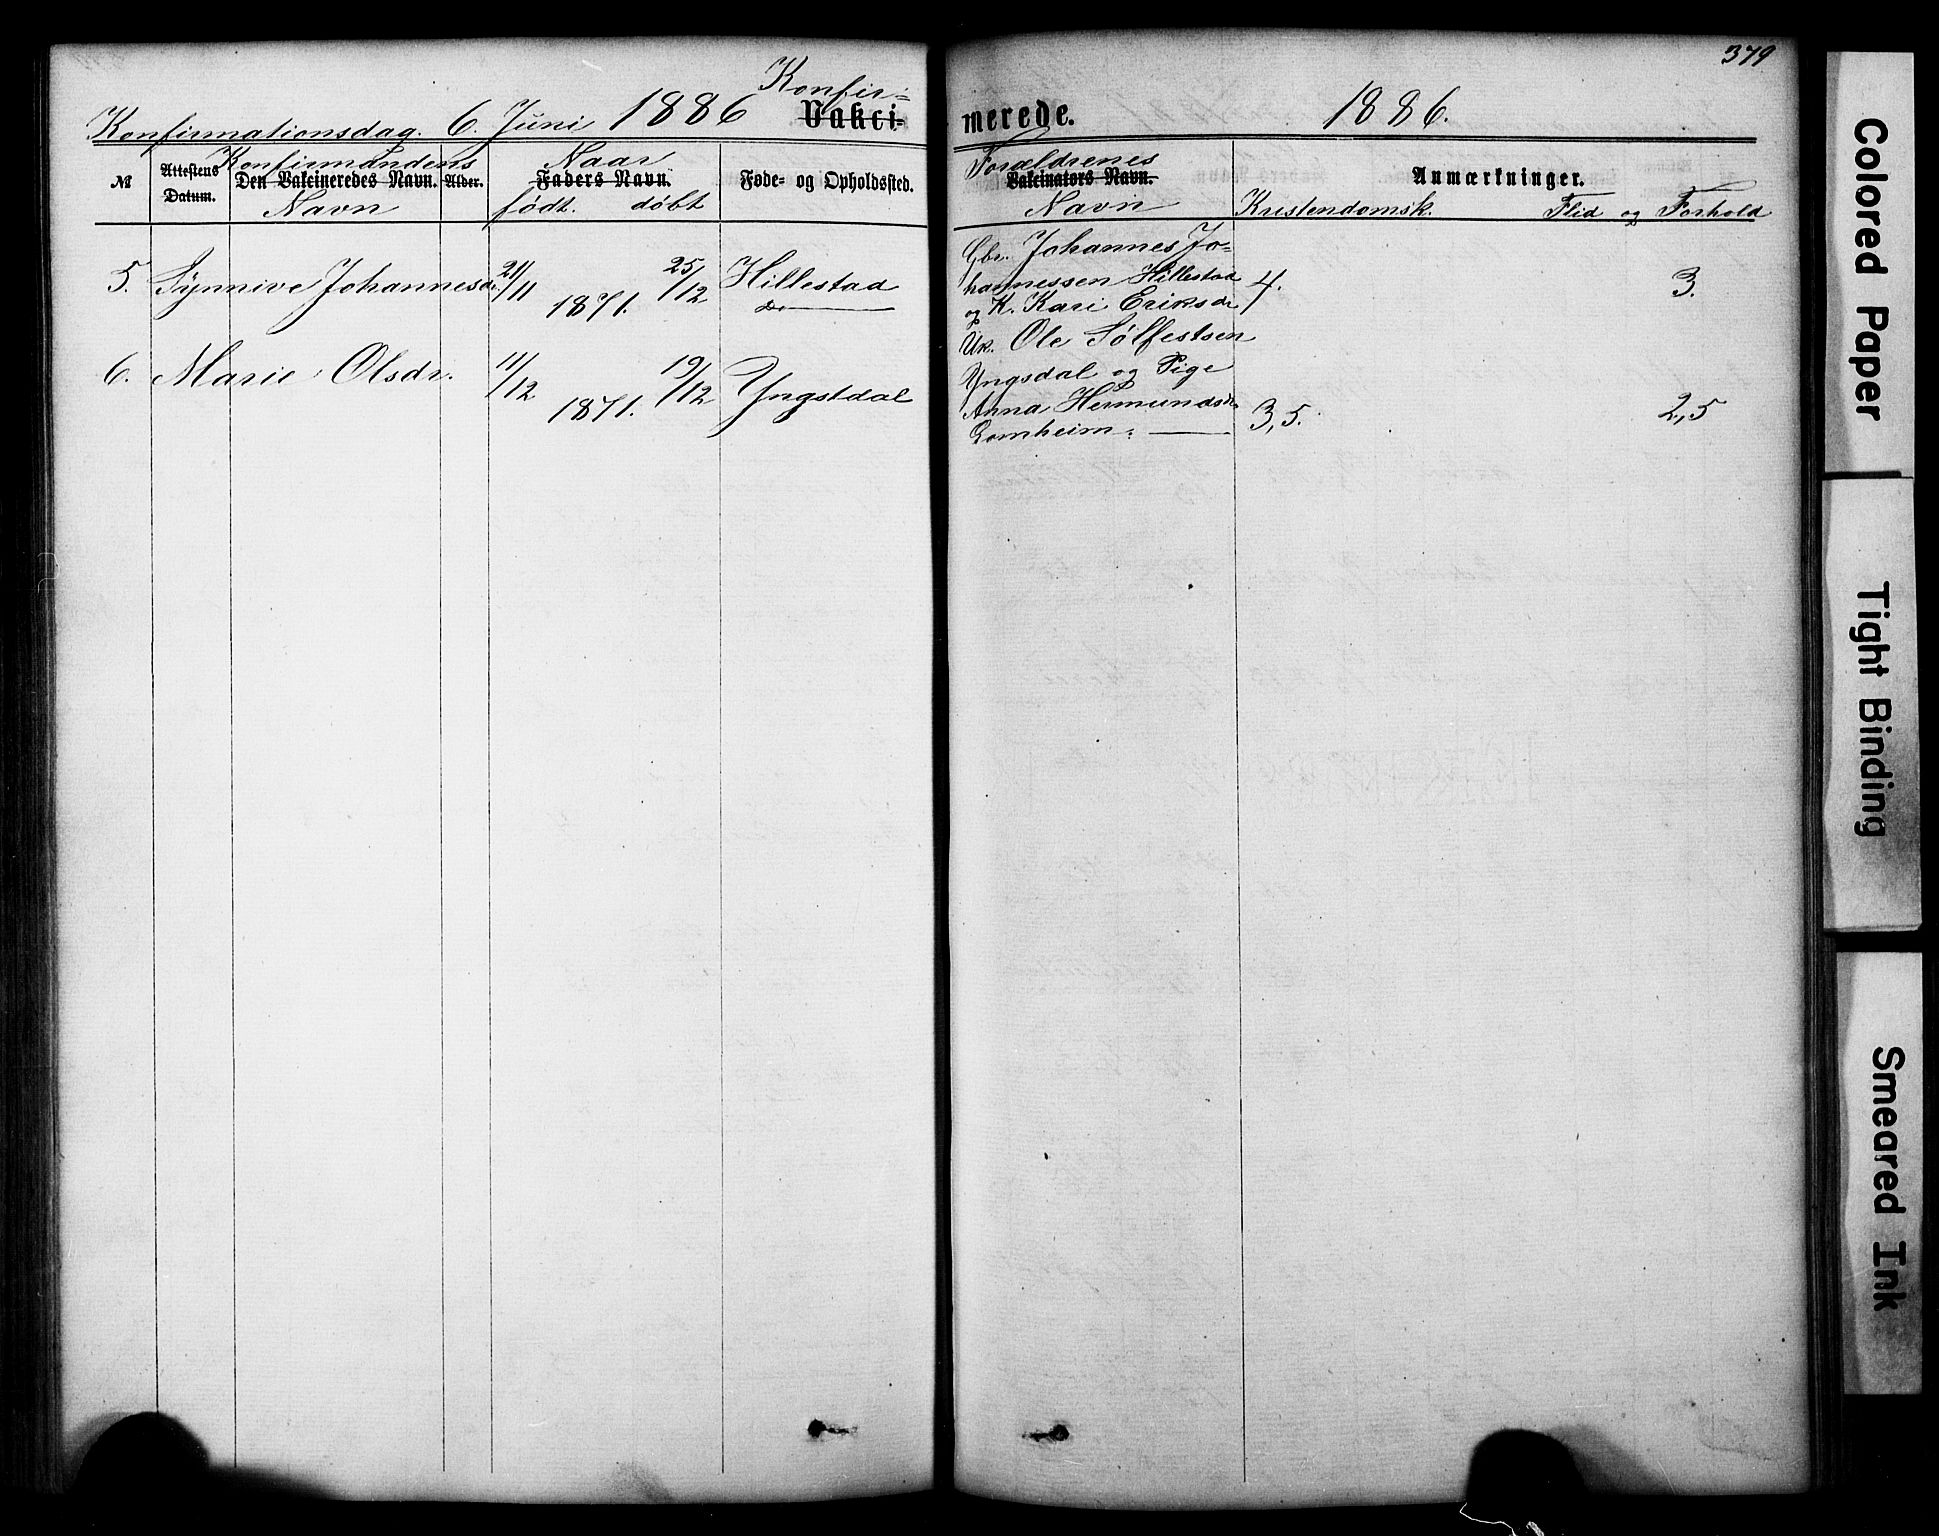 379
Konfir-
Konfirmationsdag. 6. Juni 1886 Vakci-
merede. 1886.
Konfirmandens Naar
№ Attestens Datum. Den Vakcineredes Navn. Alder. Faders Navn. Føde- og Opholdssted.
Navn født. døbt
Forældrenes
Vakcinators Navn. Anmærkninger.
Navn Kristendomsk. Flid og Forhold
5. Synnive Johannesdr. 21/11 1871. 25/12 Hillestad
do
Gbr. Johannes Jo-
hannessen Hillestad 4. 3.
og K. Kari Eriksdr
6. Marie Olsdr. 11/12 1871. 19/12 Yngstdal
Uk. Ole Sølfestsen
Yngsdal og Pige
Anna Hermundsdr 3,5. 2,5
Gomheim.
Colored Paper
Tight Binding
Smeared Ink